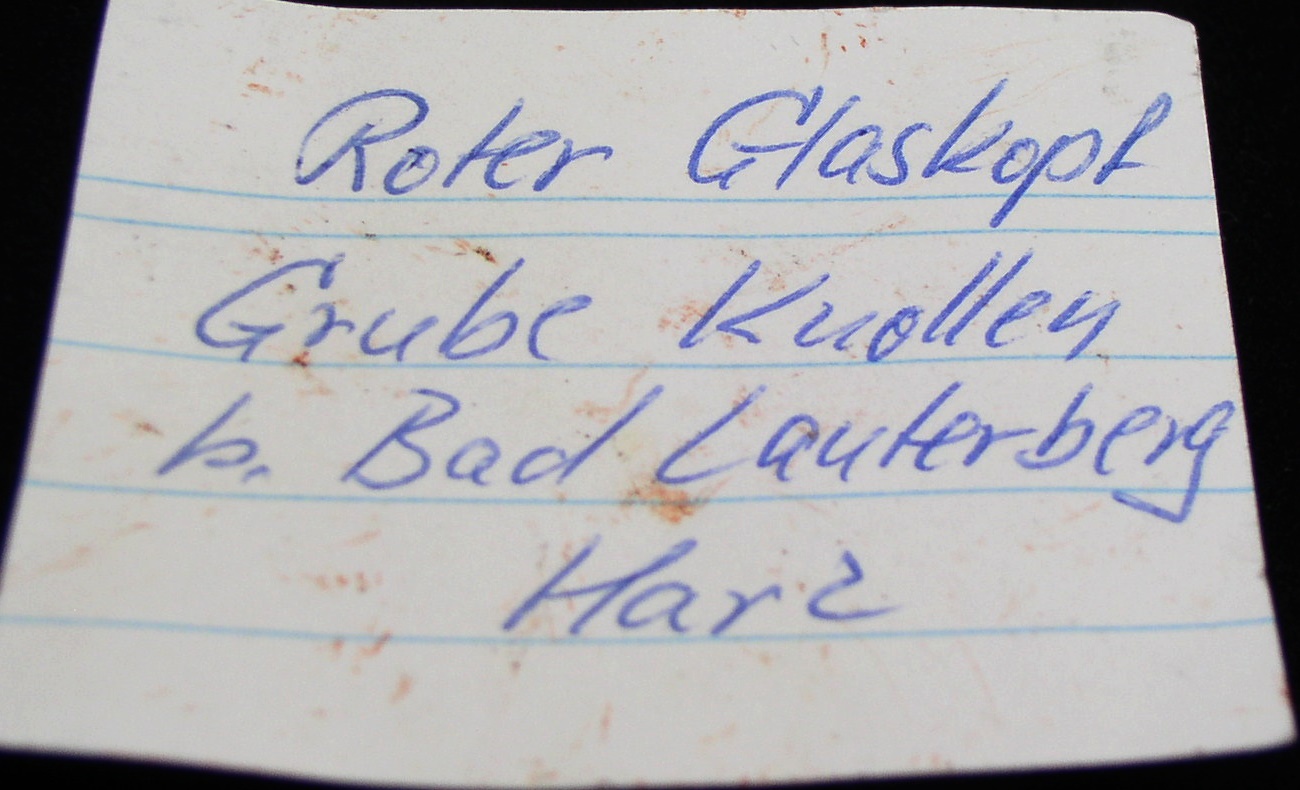 Roter Glaskopf
Grube Knollen
b. Bad Lauterberg
Harz